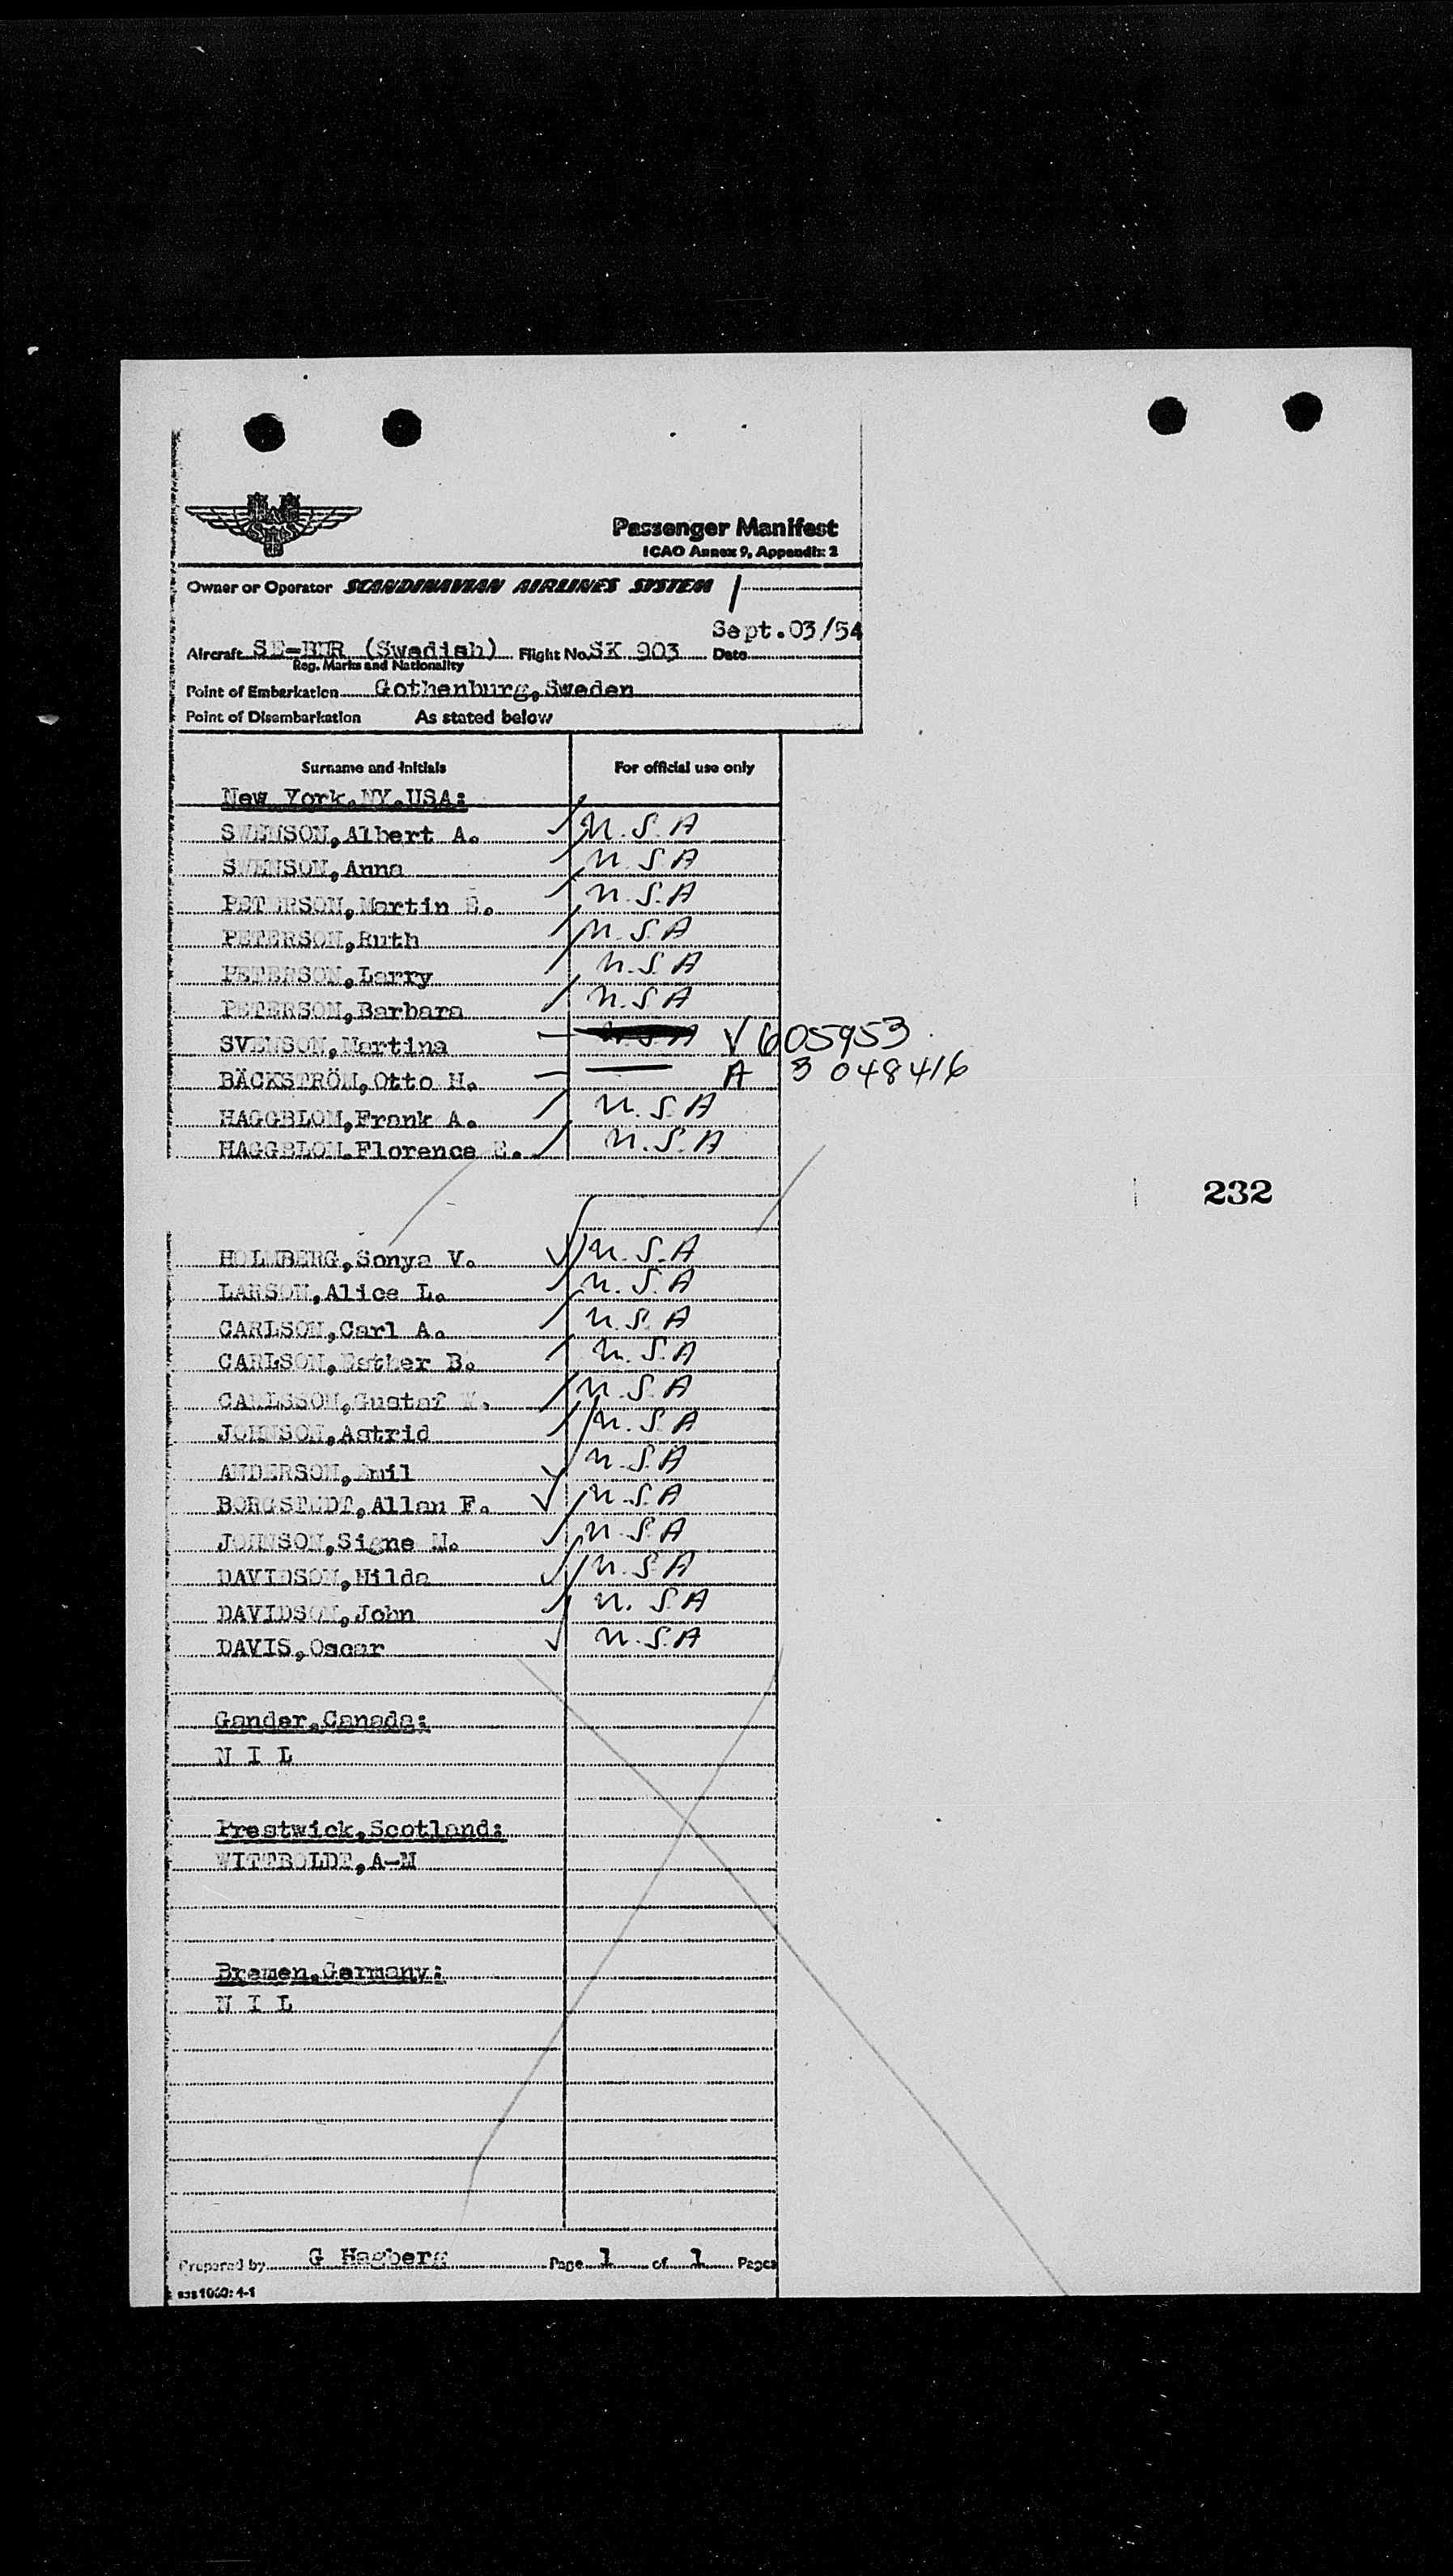 Passenger Manifest
ICAO Annex 9, Appendix 2
Owner or Operator SCANDINAVIAN AIRLINES SYSTEM
Sept.03/54
Aircraft (Swedish) Flight No. SK 903 Date
Reg. Marks and Nationality
Point of Embarkation Gothenburg,Sweden
Point of Disembarkation As stated below
Surname and Initials For official use only
New York,NY,USA:
SWENSON,Albert A. U.S.A
SWENSON,Anna U.S.A
PETERSON,Martin E. U.S.A
PETERSON,Ruth U.S.A
PETERSON,Larry U.S.A
PETERSON,Barbara U.S.A
SVENSON,Martina V605953
BÄCKSTRÖM,Otto H. A 3 048416
HAGGBLOM,Frank A. U.S.A
HAGGBLOM,Florence E. U.S.A
232
HOLMBERG,Sonya V. U.S.A
LARSON,Alice L. U.S.A
CARLSON,Carl A. U.S.A
CARLSON,Esther B. U.S.A
CARLSSON,Gustaf W. U.S.A
JOHNSON,Astrid U.S.A
ANDERSON,Emil U.S.A
BORGSTEDT,Allan F. U.S.A
JOHNSON,Signe M. U.S.A
DAVIDSON,Hilda U.S.A
DAVIDSON,John U.S.A
DAVIS,Oscar U.S.A
Gander,Canada:
N I L
Prestwick,Scotland:
WITTBOLDT,A-M
Bremen,Germany:
N I L
Prepared by G Hagberg Page 1 of 1 Pages